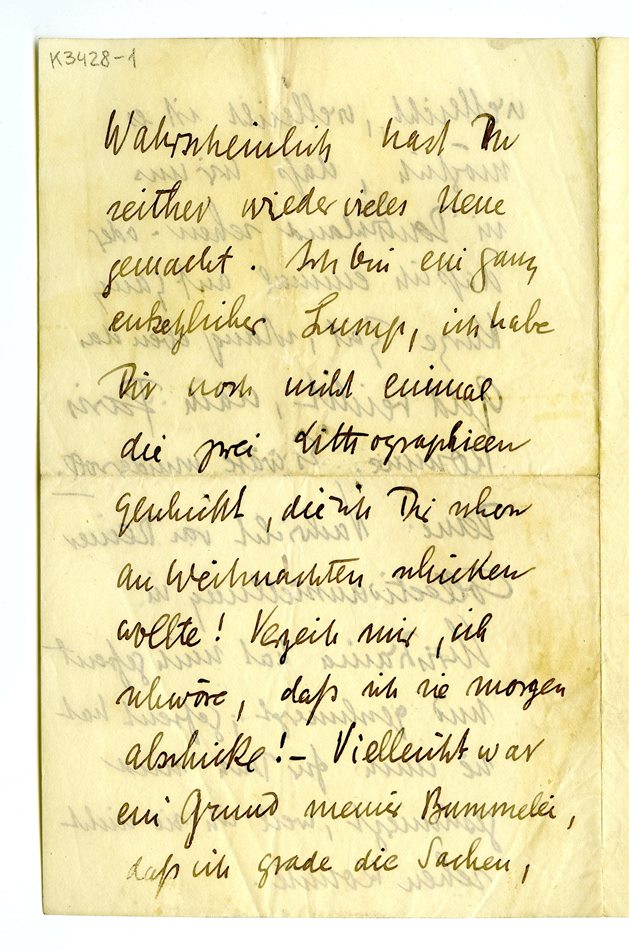 K3428-1
Wahrscheinlich hast Du
seither wieder vieles Neue
gemacht. Ich bin ein ganz
entsetzlicher Lump, ich habe
Dir noch nicht einmal
die zwei Lithographieen
geschickt, die ich Dir schon
an Weihnachten schicken
wollte! Verzeih mir, ich
schwöre, daß ich sie morgen
abschicke! – Vielleicht war
ein Grund meiner Bummelei,
daß ich grade die Sachen,